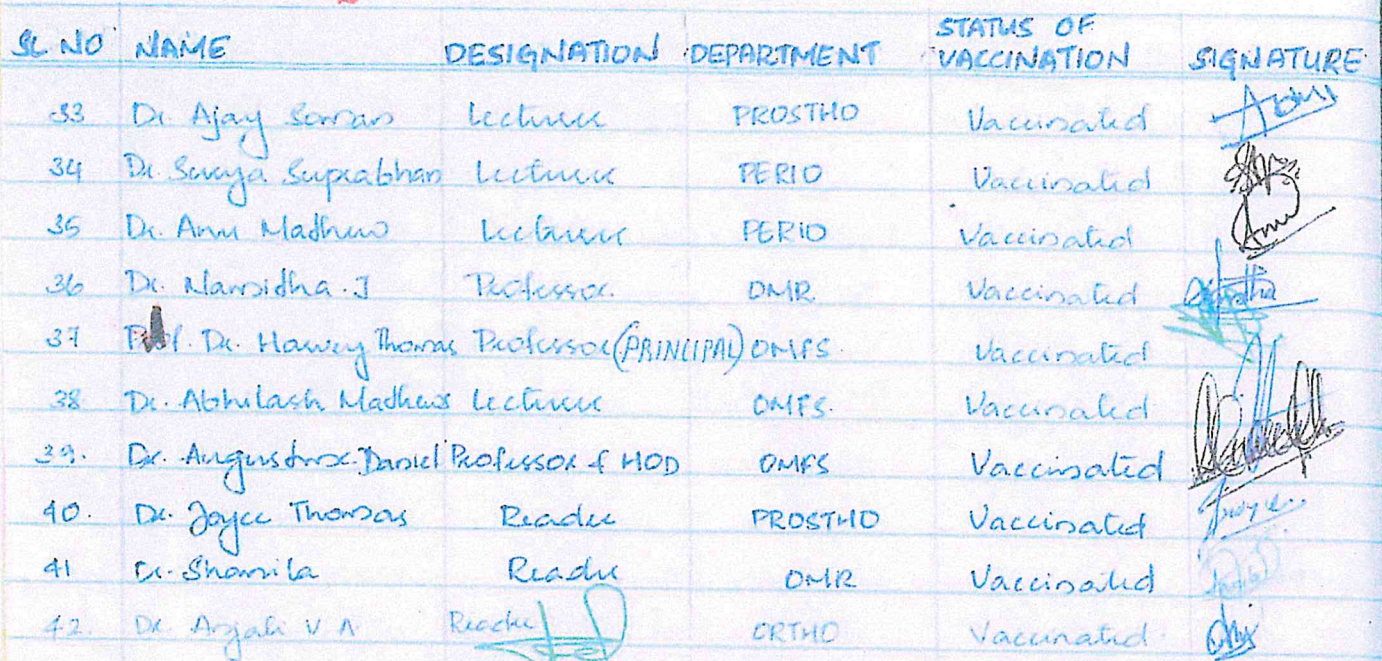 SL NO NAME DESIGNATION DEPARTMENT STATUS OF VACCINATION SIGNATURE
33 Dr. Ajay Soman Lecturer PROSTHO Vaccinated
34 Dr. Suprabhan Lecturer PERIO Vaccinated
35 Dr. Anu Mathew Lecturer PERIO Vaccinated Anu
36 Dr. Namidha. J Professor. OMR Vaccinated
37 Prof. Dr. Thomas Professor (PRINCIPAL) OMFS. Vaccinated
38 Dr. Abhilash Mathews Lecturer OMFS. Vaccinated
39. Dr. Augustine Daniel Professor & HOD OMFS Vaccinated
40. Dr. Joyce Thomas Reader PROSTHO Vaccinated
41 Dr. Shamila Reader OMR Vaccinated
42. Dr. Anjali V A Reader ORTHO Vaccinated